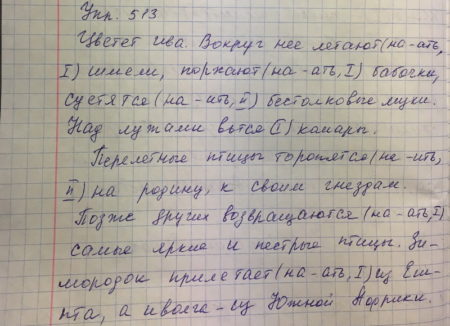 Упр. 513
Цветет ива. Вокруг нее летают(на-ать,
I) шмели, порхают(на-ать, I) бабочки,
суетятся (на-ить, II) бестолковые мухи.
Над лужами вьтся (I) комары.
Перелетные птицы торопятся(на-ить,
II) на родину, к своим гнездам.
Позже других возвращаются (на-ать, I)
самые яркие и пестрые птицы. Зи-
мородок прилетает(на-ать, I) из Еги-
пта, а иволга-из Южной Африки.